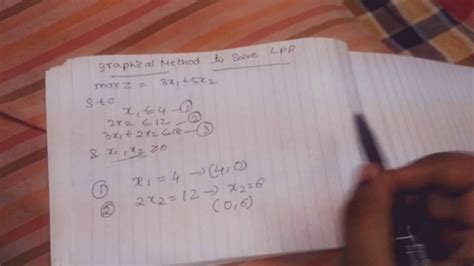 Graphical Method to Solve LPP
max Z = 3x₁+5x₂
S.t.c
x₁ ≤ 4 → ①
2x₂ ≤ 12 → ②
3x₁+2x₂ ≤ 18 → ③
& x₁, x₂ ≥ 0
① x₁ = 4 → (4,0)
② 2x₂ = 12 → x₂=6
(0,6)